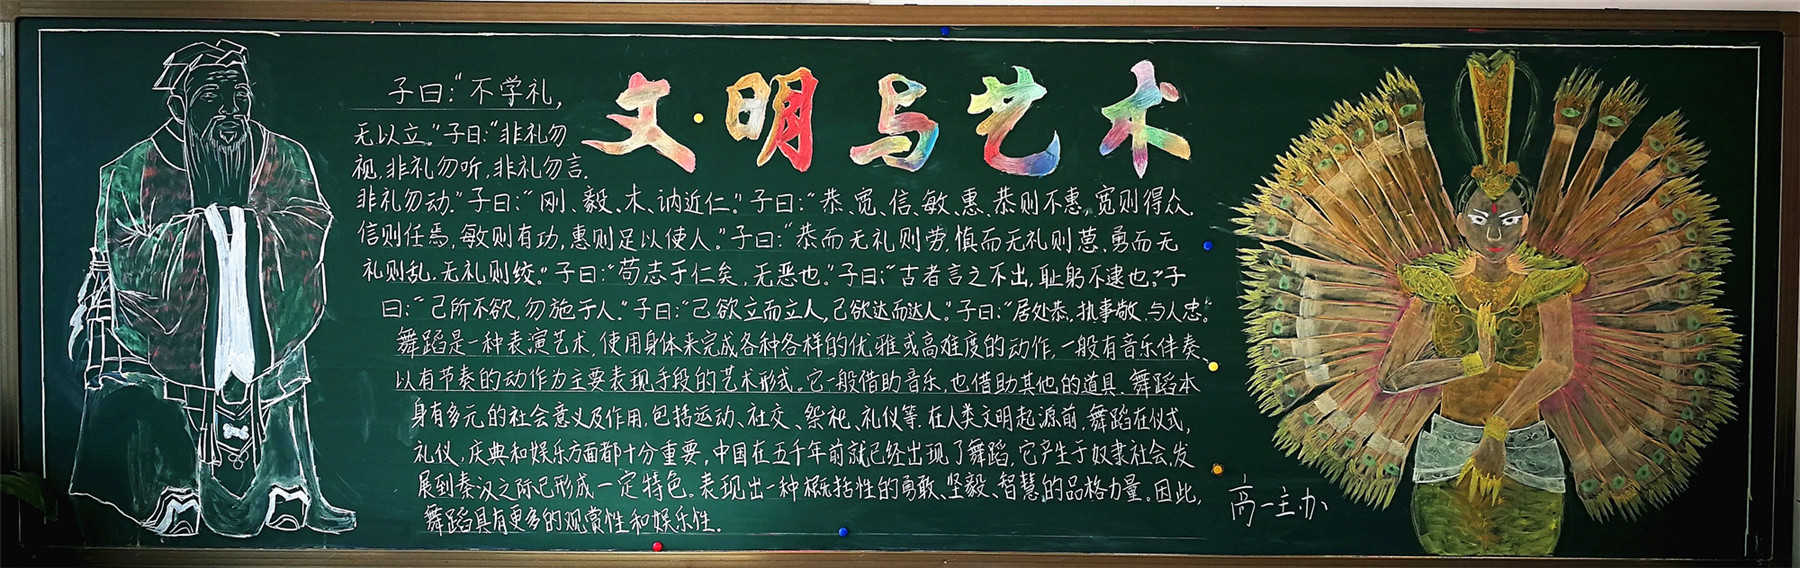 文明与艺术
子曰:“不学礼,
无以立。”子曰:“非礼勿
视,非礼勿听,非礼勿言.
非礼勿动.”子曰:“刚、毅、木、讷近仁。”子曰:“恭、宽、信、敏、惠、恭则不惠,宽则得众.
信则任焉,敏则有功,惠则足以使人。”子曰:“恭而无礼则劳,慎而无礼则葸,勇而无
礼则乱,无礼则绞。”子曰:“苟志于仁矣,无恶也。”子曰:“古者言之不出,耻躬不逮也。”子
曰:“己所不欲,勿施于人。”子曰:“己欲立而立人,己欲达而达人。”子曰:“居处恭,执事敬,与人忠。”
舞蹈是一种表演艺术,使用身体来完成各种各样的优雅或高难度的动作,一般有音乐伴奏、
以有节奏的动作为主要表现手段的艺术形式。它一般借助音乐,也借助其他的道具.舞蹈本
身有多元的社会意义及作用,包括运动、社交、祭祀、礼仪等.在人类文明起源前,舞蹈在仪式,
礼仪,庆典和娱乐方面都十分重要,中国在五千年前就已经出现了舞蹈,它产生于奴隶社会,发
展到秦汉之际已形成一定特色。表现出一种概括性的勇敢、坚毅、智慧的品格力量。因此,
舞蹈具有更多的观赏性和娱乐性。
高一主办